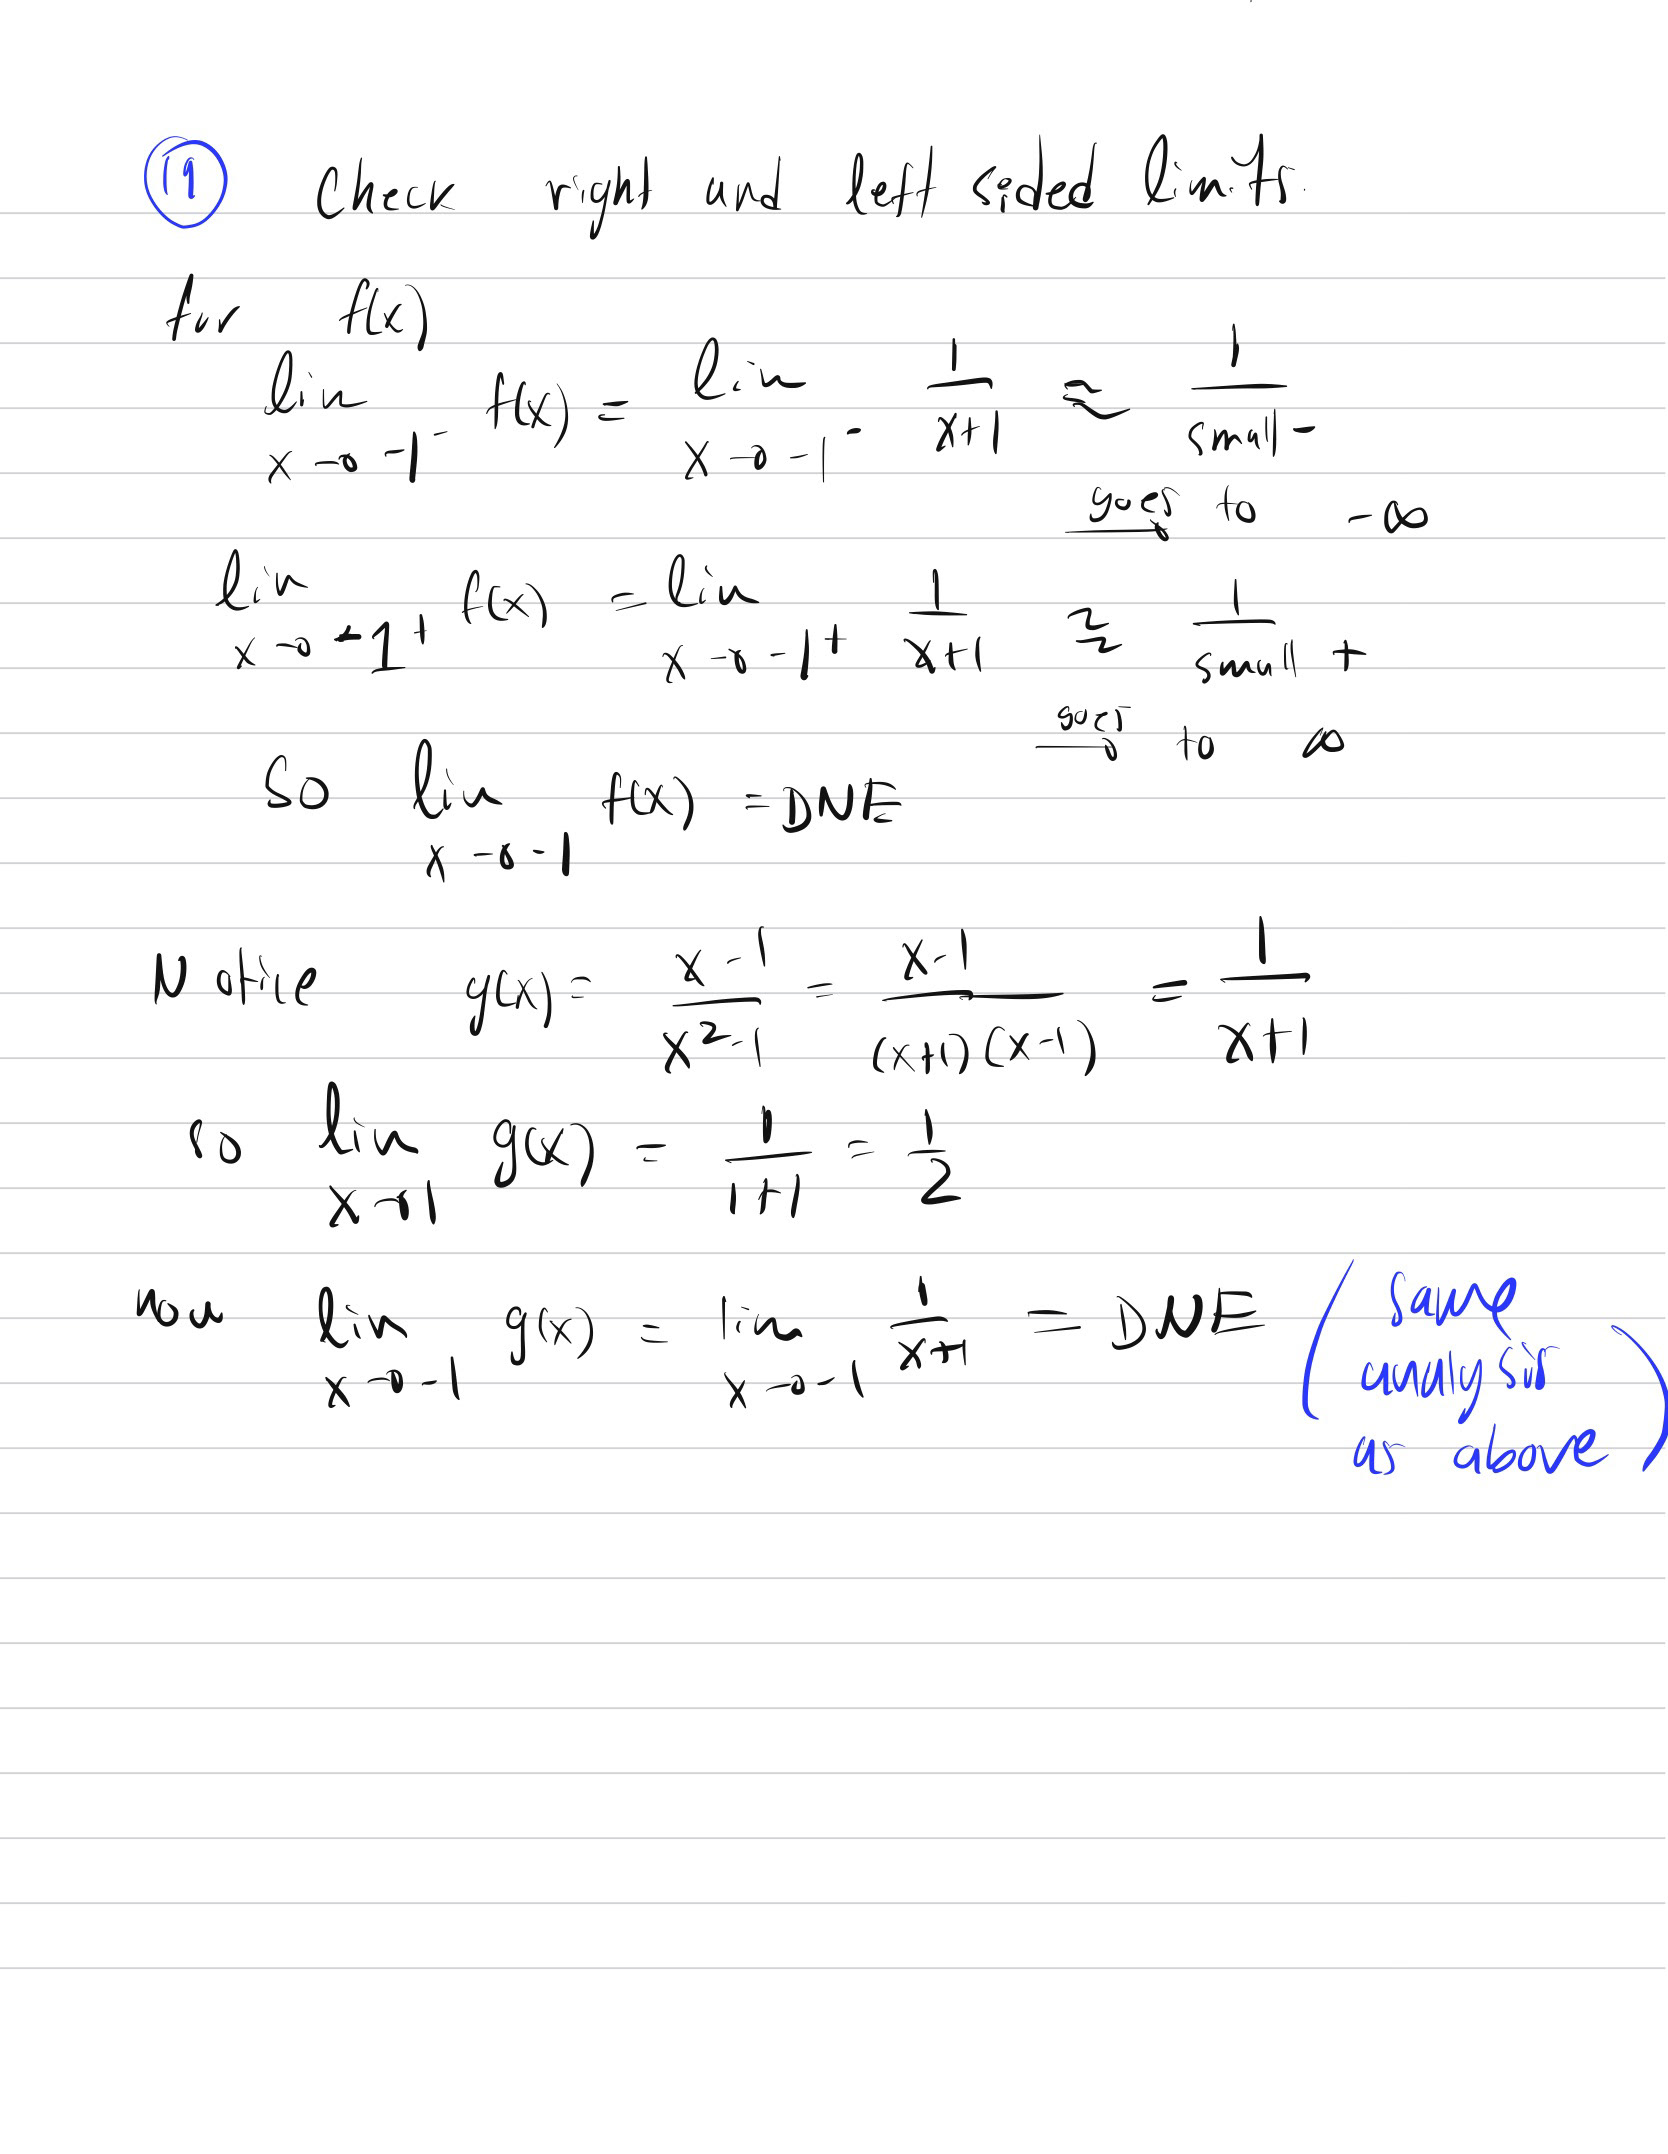 19 Check right and left sided limits.
for f(x)
lim x→-1⁻ f(x) = lim x→-1⁻ 1/(x+1) ≈ 1/(small -)
goes to -∞
lim x→-1⁺ f(x) = lim x→-1⁺ 1/(x+1) ≈ 1/(small +)
goes to ∞
So lim x→-1 f(x) = DNE
Notice g(x) = (x-1)/(x²-1) = (x-1)/((x+1)(x-1)) = 1/(x+1)
so lim x→1 g(x) = 1/(1+1) = 1/2
now lim x→-1 g(x) = lim x→-1 1/(x+1) = DNE (same
analysis
as above)